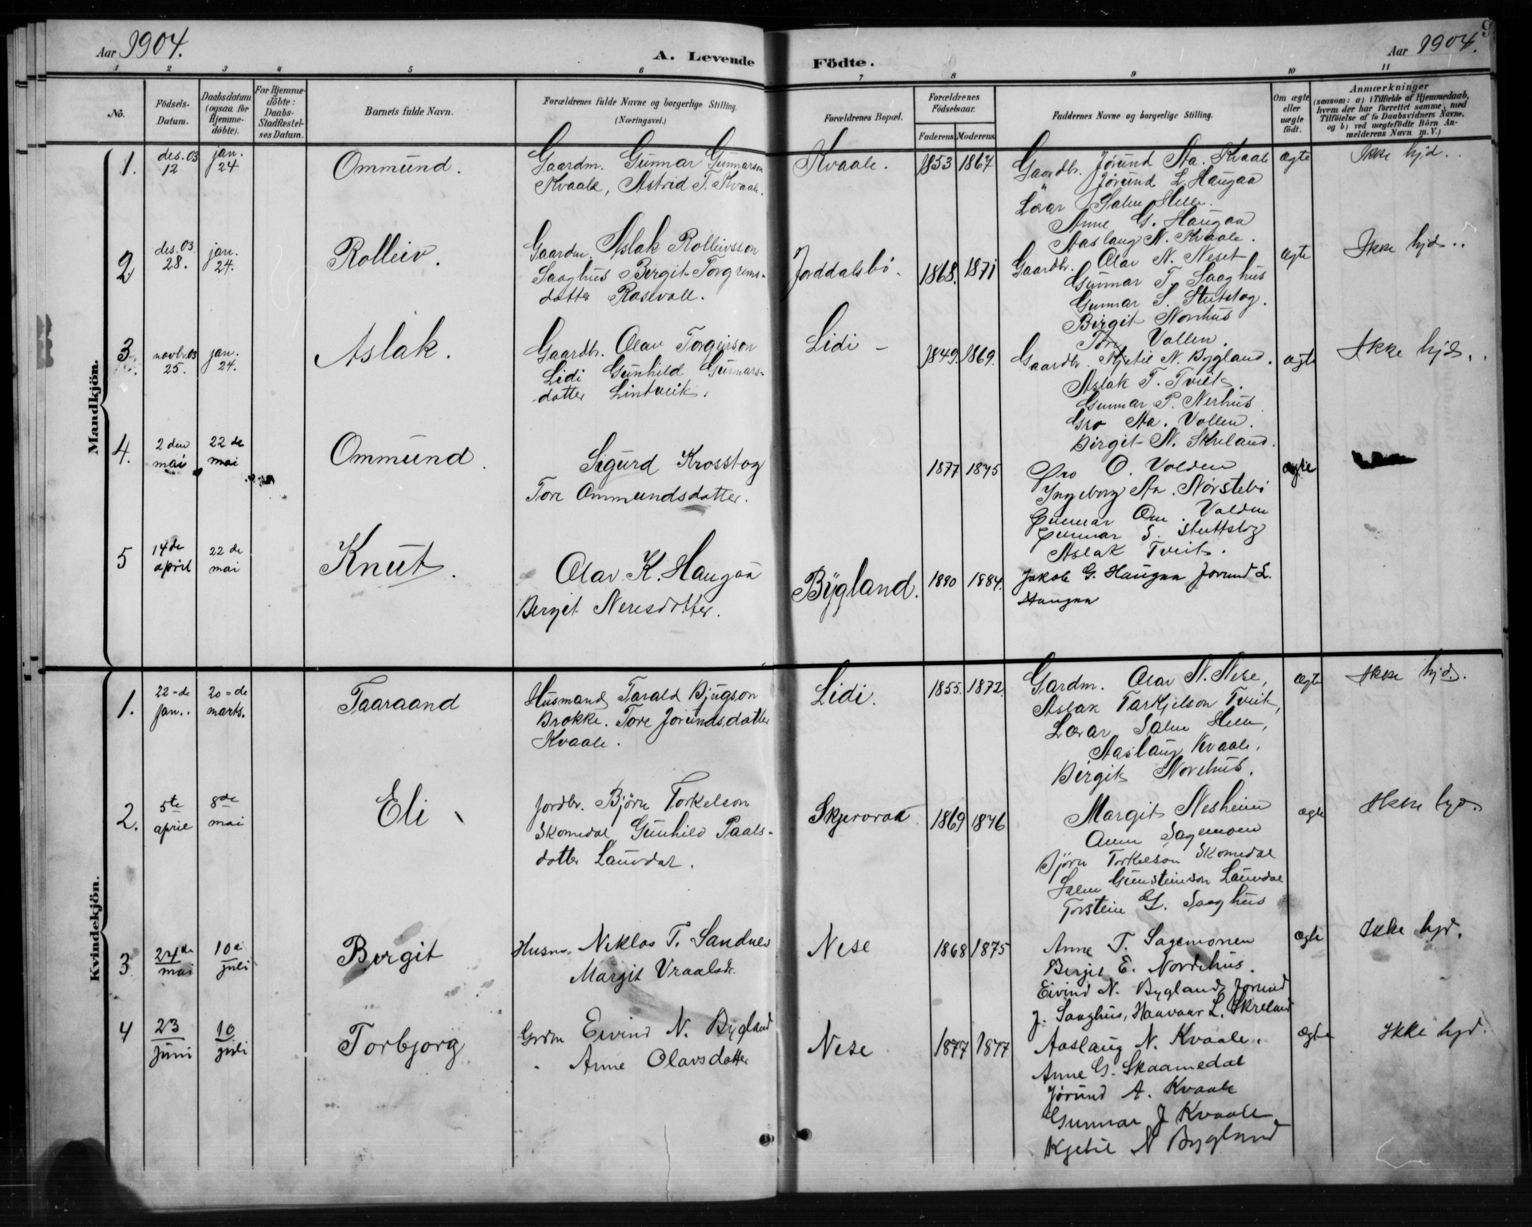 Aar 1904.
A. Levende Födte.
Aar 1904.
9
1 2 3 4 5 6 7 8 9 10 11
No.
Födsels-Datum.
Daabsdatum (ogsaa for Hjemme-döbte).
For Hjemme-döbte: Daabs-Stadfæstel-ses Datum.
Barnets fulde Navn.
Forældrenes fulde Navne og borgerlige Stilling. (Næringsvei.)
Forældrenes Bopæl.
Forældrenes Födselsaar.
Faderens. Moderens.
Faddernes Navne og borgerlige Stilling.
Om ægte eller uægte födt.
Anmærkninger
(saasom: a) i Tilfælde af Hjemmedaab, hvem der har forrettet samme, med Tilföielse af to Daabsvidners Navne, og b) ved uægtefödte Börn An-melderens Navn m. V.)
Mandkjön.
1. des. 03 12 jan. 24 Ommund.
Gaardm. Gunnar Gunnarson
Kvaale, Astrid T. Kvaale.
Kvaale. 1853 1867
Gaardbr. Jörund Aa. Kvaale
" Jörund L. Haugaa
Lærar Salm Helle.
Anne G. Haugaa
Aaslaug N. Kvaale.
ægte Ikke hjd..
2 des. 03 28. jan. 24. Rolleiv.
Gaardm. Aslak Rolleivsson
Saaghus Birgit Torgrims-
dotter Rosvoll.
Joddalsbö. 1868. 1871
Gaardbr. Olav N. Neset
Gunnar T. Saaghus
Gunnar S. Stutstog.
Birgit Norehus
Tor Vollen.
ægte Ikke hjd..
3. novbr. 03 25. jan. 24. Aslak.
Gaardbr. Olav Torgeirson
Lidi Gunhild Gunnars-
dotter Lintveit.
Lidi – 1849. 1869.
Gaardbr. Kjetil N. Bygland.
Aslak T. Tveit.
Gunnar P. Nerhus
Gro Aa. Vollen.
Birgit N. Skreland.
ægte Ikke hjd..
4. 2den mai 22de mai Ommund.
Sigurd Krosstog
Tore Ommundsdotter.
1877 1875
Gro O. Valden
Ingeborg Aa. Nörstebö
Gunnar Om. Valden
Gunnar S. Stuttstog
Aslak Tveit.
ægte
5 14de april 22de mai Knut.
Olav K. Haugaa
Berget Neresdotter.
Bygland. 1880 1884.
Jakob G. Haugaa Jorund L.
Haugaa
Kvindekjön.
1. 22-de jan. 20-de marts. Taaraand
Husmand Tarald Bjugson
Brokke. Tore Jorundsdotter
Kvaale.
Lidi. 1855. 1872
Gardm. Olav N. Nese,
Aslak Tarkjelson Tveit,
Lærar Salm Helle,
Aaslaug Kvaale.
Birgit Norehus.
ægte Ikke hjd.
2. 5te april 8de mai Eli
Jordbr. Björn Torkelson
Skomedal Gunhild Paals-
dotter Lauvdal.
Skjeroraa 1869 1876
Margit Nesheim
Anne Sagemoen
Björn Torkelson Skomedal
Salm Gunsteinson Lauvdal
Torstein G. Saaghus
ægte Ikke hjd.
3 24de mai 10de juli Birgit
Husm. Niklas T. Sandnes
Margit Vraalsd.
Nese 1868 1875
Anne T. Sagemonen
Birgit E. Nordehus.
Eivind N. Bygland, Jorund
J. Saaghus, Haavaar L. Skreland
ægte Ikke hjd.
4 23 juni 10 juli Torbjorg
Grdm Eivind N. Bygland
Anne Olavsdotter
Nese 1877 1877
Aaslaug N. Kvaale.
Anne G. Skaamedal
Jörund A. Kvaale
Gunnar J Kvaale
Kjetil N Bygland
ægte Ikke hjd.